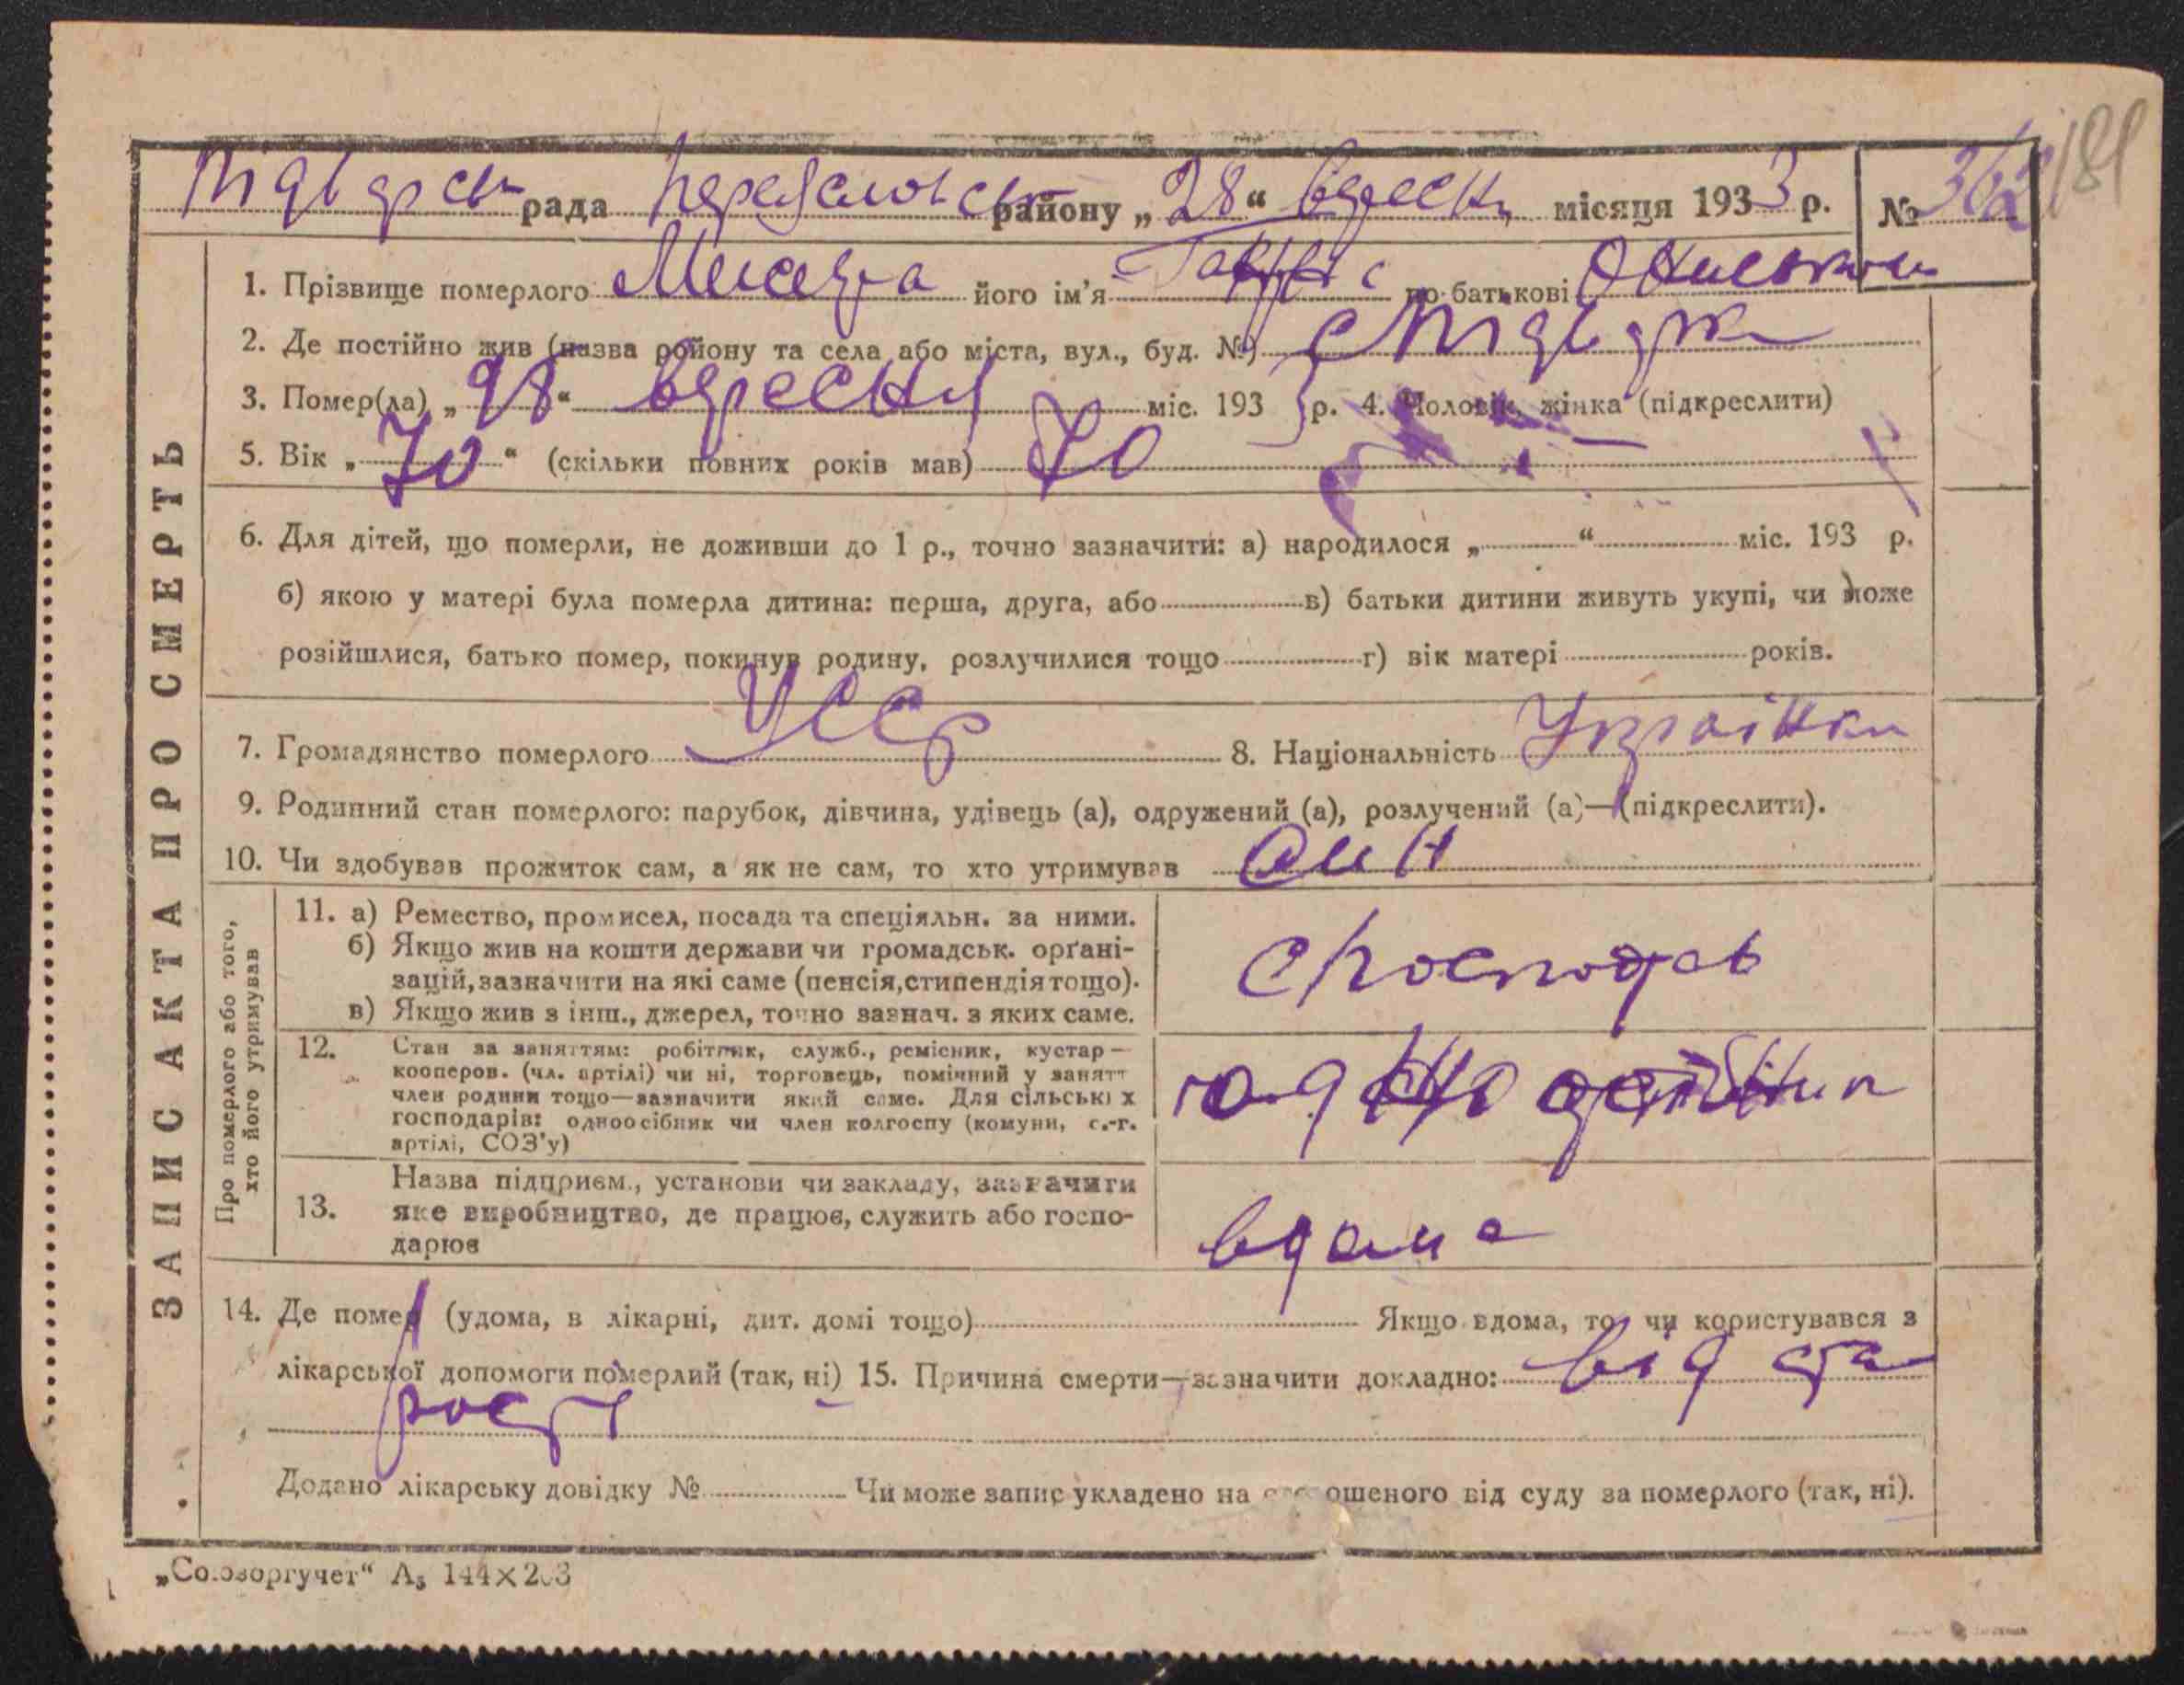 Підварська рада Переяславськ району „28“ вересня місяця 1933 р. № 362
181
1. Прізвище померлого його ім'я по батькові
2. Де постійно жив (назва району та села або міста, вул., буд. №) с Підварки
3. Помер(ла) „28“ вересня міс. 1933 р. 4. Чоловік, жінка (підкреслити)
5. Вік „70“ (скільки повних років мав) 70
6. Для дітей, що померли, не доживши до 1 р., точно зазначити: а) народилося „ “ міс. 193 р.
б) якою у матері була померла дитина: перша, друга, або в) батьки дитини живуть укупі, чи може
розійшлися, батько помер, покинув родину, розлучилися тощо г) вік матері років.
7. Громадянство померлого УССР 8. Національність Українка
9. Родинний стан померлого: парубок, дівчина, удівець (а), одружений (а), розлучений (а)—(підкреслити).
10. Чи здобував прожиток сам, а як не сам, то хто утримував син
ЗАПИС АКТА ПРО СМЕРТЬ
Про померлого або того,
хто його утримував
11. а) Ремество, промисел, посада та спеціяльн. за ними.
б) Якщо жив на кошти держави чи громадськ. орґані-
зацій, зазначити на які саме (пенсія, стипендія тощо).
в) Якщо жив з інш., джерел, точно зазнач. з яких саме.
12. Стан за заняттям: робітник, служб., ремісник, кустар—
кооперов. (чл. артілі) чи ні, торговець, помічний у занятт
член родини тощо—зазначити який саме. Для сільських
господарів: одноосібник чи член колгоспу (комуни, с.-г.
артілі, СОЗ'у)
13. Назва підприєм., установи чи закладу, зазначити
яке виробництво, де працює, служить або госпо-
дарює
вдома
14. Де помер (удома, в лікарні, дит. домі тощо) Якщо вдома, то чи користувався з
лікарської допомоги померлий (так, ні) 15. Причина смерти—зазначити докладно: від ста
рості
Додано лікарську довідку № Чи може запис укладено на ошеного від суду за померлого (так, ні).
„Союзоргучет“ А5 144×203